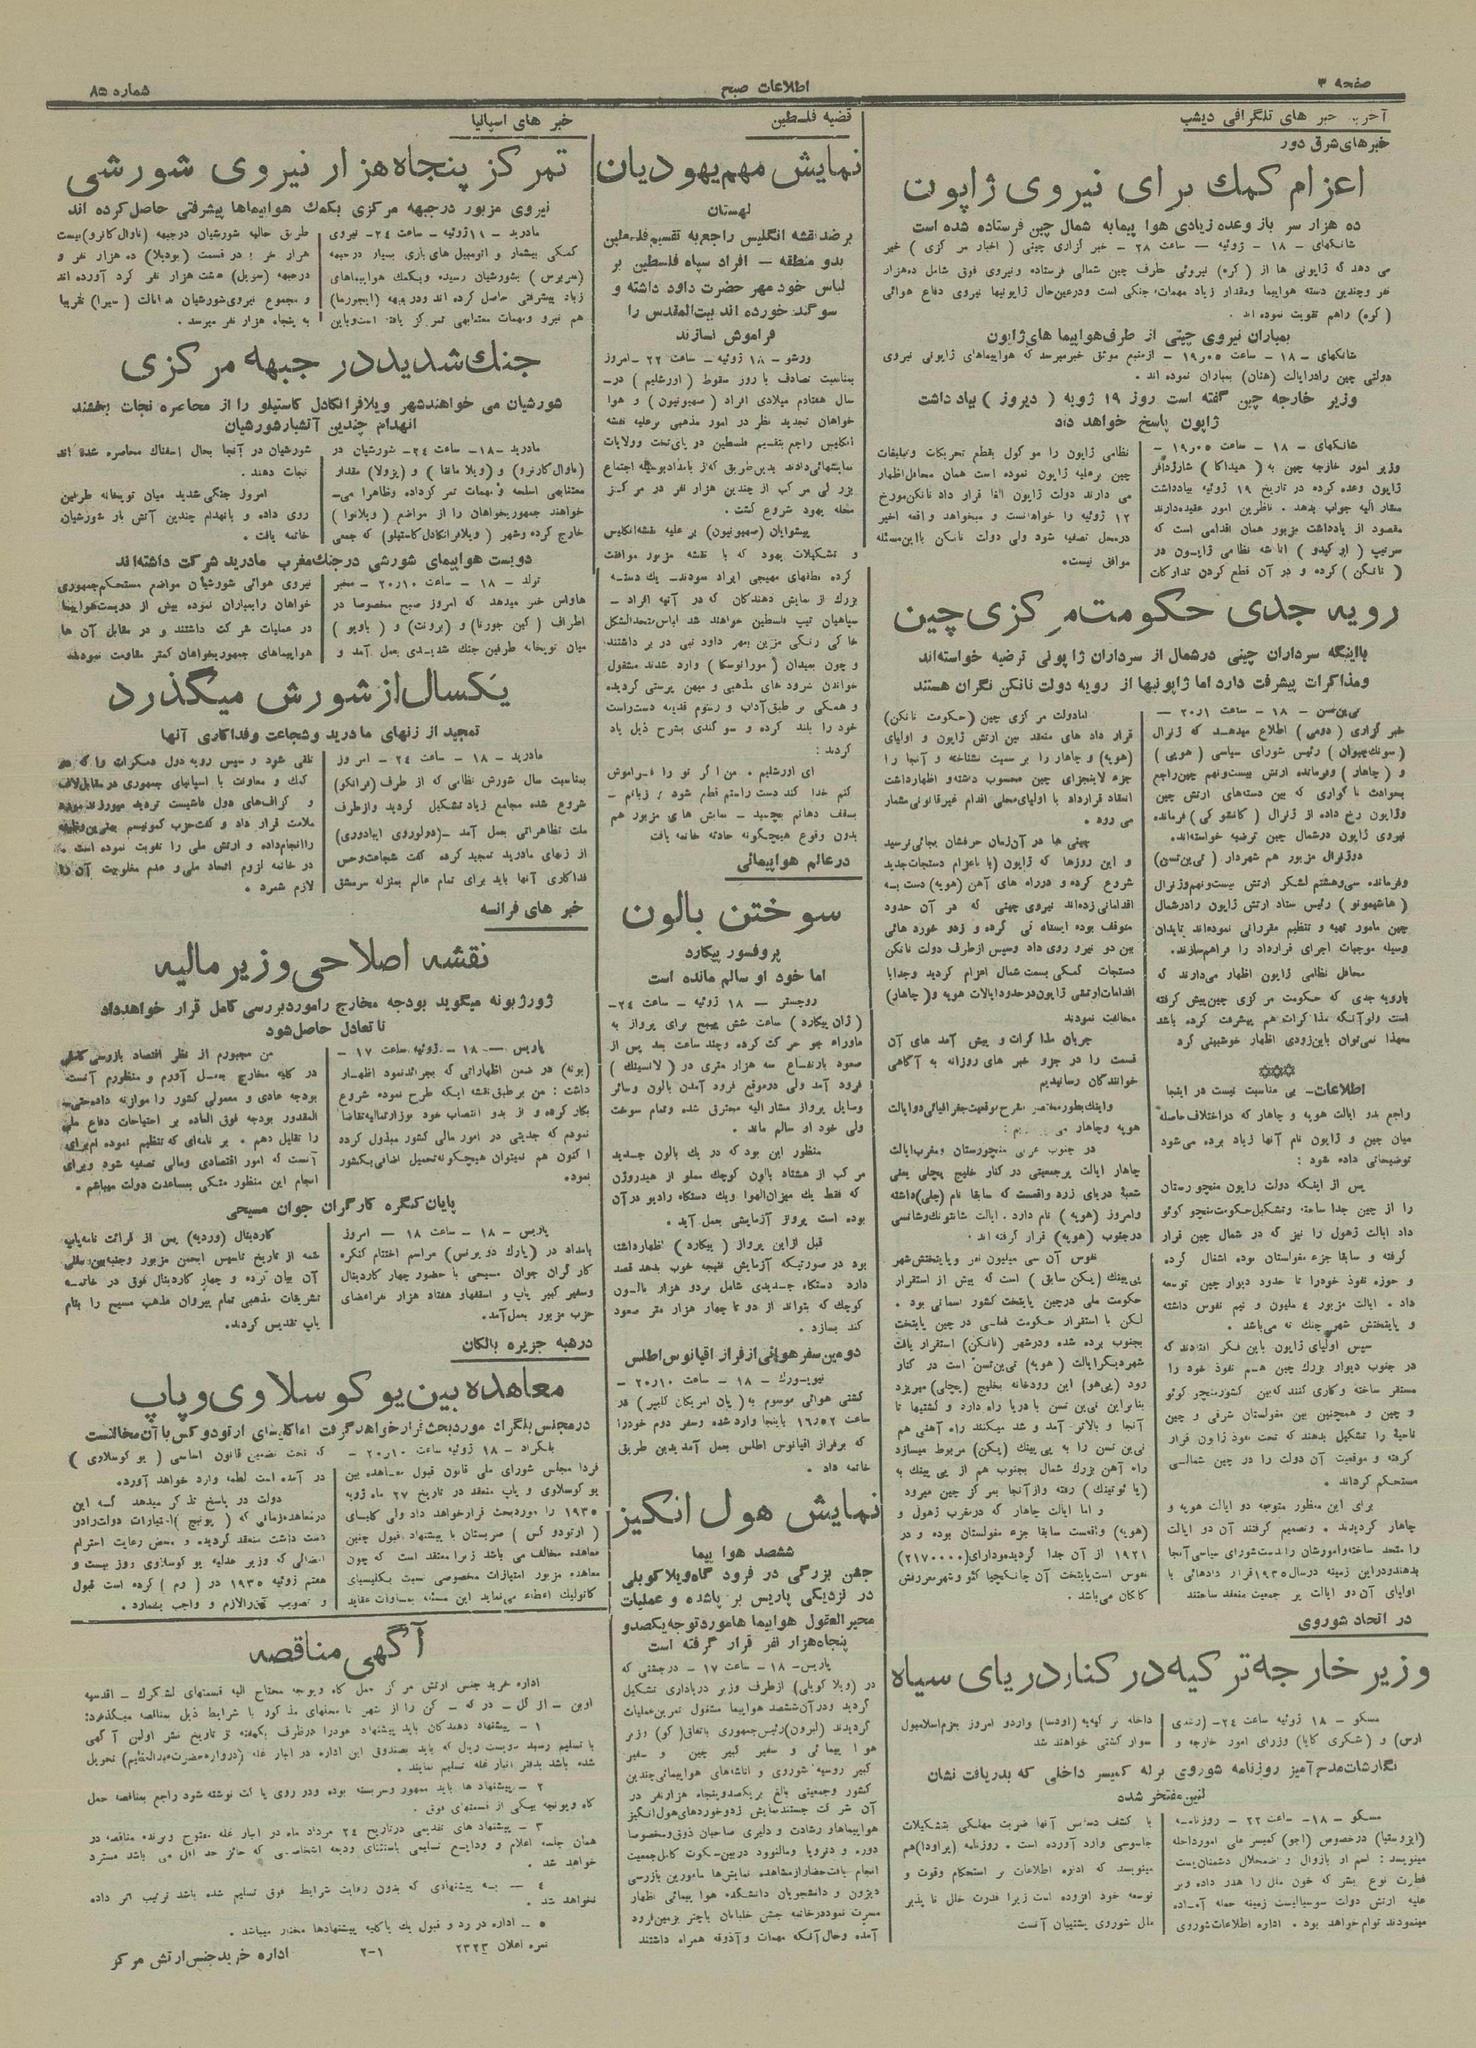 صفحه ۳
اطلاعات صبح
شماره ۸۵
آخرین خبر های تلگرافی دیشب
خبرهای شرق دور
اعزام کمک برای نیروی ژاپون
ده هزار سر باز وعده زیادی هوا پیمابه شمال چین فرستاده شده است
شانگهای - ۱۸ - ژوئیه — ساعت ۲۸ - خبر گزاری چینی ( اخبار مر کزی ) خبر
می دهد که ژاپونی ها از ( کره ) نیروئی طرف چین شمالی فرستاده ونیروی فوق شامل ده‌هزار
نفر وچندین دسته هواپیما ومقدار زیاد مهمات جنگی است ودرعین‌حال ژاپونیها نیروی دفاع هوائی
( کره ) راهم تقویت نموده اند .
بمباران نیروی چینی از طرف‌هواپیما های‌ژاپون
شانگهای - ۱۸ - ساعت ۱۹٫۰۵ - ازمنبع موثق خبرمیرسد که هواپیماهای ژاپونی نیروی
دولتی چین رادرایالت (هنان) بمباران نموده اند .
وزیر خارجه چین گفته است روز ۱۹ ژویه ( دیروز ) بیاد داشت
ژاپون پاسخ خواهد داد
شانگهای - ۱۸ - ساعت ۱۹٫۰۵ -
وزیر امور خارجه چین به ( هیداکا ) شارژدافر
ژاپون وعده کرده در تاریخ ۱۹ ژوئیه بیادداشت
مشار الیه جواب بدهد. ناظرین امور عقیده‌دارند
مقصود از یادداشت مزبور همان اقدامی است که
سرتیپ ( ) اتاشه نظامی ژاپون در
( نانکن ) کرده و در آن قطع کردن تدارکات
نظامی ژاپون را موکول بقطع تحریکات وتبلیغات
چین برعلیه ژاپون نموده است همان محافل‌اظهار
می دارند دولت ژاپون الغا قرار داد نانکن‌مورخ
۱۲ ژوئیه را خواهانست و میخواهد واقعه اخیر
درمحل تصفیه شود ولی دولت نانکن بااین‌مسئله
موافق نیست.
رویه جدی حکومت‌مر کزی چین
بااینکه سرداران چینی درشمال از سرداران ژاپونی ترضیه خواسته‌اند
ومذاکرات پیشرفت دارد اما ژاپونیها از رویه دولت نانکن نگران هستند
تی‌ین‌تسن - ۱۸ - ساعت ۲۰٫۱ -
خبر گزاری ( دومی ) اطلاع میدهد که ژنرال
( سونگ‌چیوان ) رئیس شورای سیاسی ( هوپی )
و ( چاهار ) وفرمانده ارتش بیست‌ونهم چین‌راجع
بحوادث ناگواری که بین دسته‌های ارتش چین
وژاپون رخ داده از ژنرال ( کاتشو کی ) فرمانده
نیروی ژاپون درشمال چین ترضیه خواسته‌اند.
دوژنرال مزبور هم شهردار ( تی‌ین‌تسن )
وفرمانده سی‌وهشتم لشگر ارتش بیست‌ونهم‌وژنرال
( هاشیمونو ) رئیس ستاد ارتش ژاپون رادرشمال
چین مامور تهیه و تنظیم مقرراتی نموده‌اند تابدان
وسیله موجبات اجرای قرارداد را فراهم‌سازند.
محافل نظامی ژاپون اظهار می‌دارند که
بارویه جدی که حکومت مر کزی چین‌پیش گرفته
است ولوآنکه مذاکرات هم پیشرفت کرده باشد
معهذا نمی‌توان باین‌زودی اظهار خوشبینی کرد
اطلاعات— بی مناسبت نیست در اینجا
راجع بدو ایالت هوپه و چاهار که دراختلاف‌حاصله
میان چین و ژاپون نام آنها زیاد برده می‌شود
توضیحاتی داده شود :
پس از اینکه دولت ژاپون منچورستان
را از چین جدا ساخته وتشکیل‌حکومت‌منچو کوئو
داد ایالت ژهول را نیز که در شمال چین قرار
گرفته و سابقا جزء مغولستان بوده اشغال کرده
و حوزه نفوذ خودرا تا حدود دیوار چین توسعه
داد . ایالت مزبور ٤ ملیون و نیم نفوس داشته
و پایتختش شهر چنک ته می‌باشد .
سپس اولیای ژاپون باین فکر افتادند که
در جنوب دیوار بزرك چین هم نفوذ خود را
مستقر ساخته وکاری کنند که‌بین کشورمنچو کوئو
و چین و همچنین بین مغولستان شرقی و چین
ناحیهٔ را تشکیل بدهند که تحت نفوذ ژاپون قرار
گرفته و موقعیت آن دولت را در چین شمالی
مستحکم گرداند .
برای این منظور متوجه دو ایالت هوپه و
چاهار گردیدند . وتصمیم گرفتند آن دو ایالت
را متحد ساخته‌وامورشان رابدست‌شورای سیاسی آنجا
بدهند‌ودراین زمینه درسال ۱۹۳۵قرار دادهائی با
اولیای آن دو ایالت پر جمعیت منعقد ساختند
امادولت مر کزی چین (حکومت نانکن)
قرار داد های منعقد بین ارتش ژاپون و اولیای
(هوپه) و چاهار را بر سمیت نشناخته و آنجا را
جزء لاینجزای چین محسوب داشته‌و اظهارداشت
انعقاد قرارداد با اولیای‌محلی اقدام غیرقانونی‌بشمار
می رود .
چینی ها در آن‌زمان حرفشان بجائی نرسید
و این روزها که ژاپون (با باعزام دستجات‌جدید
شروع کرده و درراه های آهن (هوپه) دست بـه
اقداماتی زده‌اند نیروی چینی که در آن حدود
متوقف بوده ایستاده گی کرده و زدو خورد هائی
بین دو نیرو روی داد وسپس ازطرف دولت نانکن
دستجات کمکی بسمت شمال اعزام گردید وجدابا
اقدامات‌ارتش ژاپون‌درحدودایالات هوپه و( چاهار)
مخالفت نمودند
جریان مذا کرات و پیش آمد های آن
قسمت را در جزو خبر های روزانه به آگاهی
خوانندگان رسانیدیم
واینك‌بطورمختصر بشرح‌موقعیت جغرافیائی دوایالت
هوپه وچاهار می :
در جنوب غربی منچورستان ومغرب‌ایالت
چاهار ایالت پرجمعیتی در کنار خلیج پچلی یعنی
شعبهٔ دریای زرد واقعست که سابقا نام (چلی)داشته
وامروز (هوپه ) نام دارد . ایالت شانتونك‌وشانسی
درجنوب (هوپه) قرار گرفته اند .
نفوس آن سی میلیون نفر وپایتختش‌شهر
پی‌پینك (پکن سابق ) است که پیش از استقرار
حکومت ملی درچین پایتخت کشور آسمانی بود .
لکن با استقرار حکومت فعلی در چین پایتخت
بجنوب برده شده ودرشهر (نانکن) استقرار یافت
شهردیگرایالت (هوپه) تی‌ین‌تسن است در کنار
رود (پی‌هو) این رودخانه بخلیج (پچلی) میریزد
بنابراین تی‌ین تسن با دریا راه دارد و کشتیها تا
آنجا و بالاتر آمد و شد میکنند راه آهنی هم
تی‌ین تسن را به پی پینك (پکن) مربوط میسازد
راه آهن بزرك شمال بجنوب هم از پی پینك به
( یا ئوتینك ) رفته وازآنجا بمر کز چین میرود
و اما ایالت چاهار که درمغرب ژهول و
(هوپه) واقعست سابقا جزء مغولستان بوده و در
۱۹۲۱ از آن جدا گردیده‌ودارای(۲۱۷۰۰۰۰)
نفوس است‌پایتخت آن چانکچیا کئو و شهرمعروفش
کالکان می‌باشد .
در اتحاد شوروی
وزیر خارجه‌تر کیه‌در کنار دریای سیاه
مسکو - ۱۸ ژوئیه ساعت ۲٤- (رشدی
ارس) و ( شکری کایا) وزرای امور خارجه و
داخله تر کیه‌به (اودسا) واردو امروز بعزم‌اسلامبول
سوار کشتی خواهند شد
نگارشات‌مدح آمیز روزنامه شوروی برله کمیسر داخلی که بدریافت نشان
لنین‌مفتخر شده
مسکو - ۱۸- ساعت ۲۲ - روزنامه
(ایزوستیا) درخصوص (اجو) کمیسر ملی امورداخله
مینویسد : اسم او بازوال و اضمحلال دشمنان‌پست
فطرت نوع بشر که خون ملل را هدر داده وبر
علیه ارتش دولت سوسیالیست زمینه حمله آماده
مینمودند توام خواهد بود . اداره اطلاعات‌شوروی
با کشف دسایس آنها ضربت مهلکی بتشکیلات
جاسوسی وارد آورده است . روزنامه (پراودا)هم
مینویسد که اداره اطلاعات بر استحکام وقوت و
توسعه خود افزوده است زیرا قدرت خلل نا پذیر
ملل شوروی پشتیبان آنست
قضیه فلسطین
نمایش مهم‌یهودیان
لهستان
برضدنقشه انگلیس راجع‌به تقسیم‌فلسطین
بدو منطقه — افراد سپاه فلسطین بر
لباس خود مهر حضرت داود داشته و
سوگند خورده اند بیت‌المقدس را
فراموش نسازند
ورشو - ۱۸ ژوئیه - ساعت ۲۲ -امروز
بمناسبت تصادف با روز سقوط ( اورشلیم ) در-
سال هفتادم میلادی افراد ( صهیونیون ) و هوا
خواهان تجدید نظر در امور مذهبی برعلیه نقشه
انگلیس راجع بتقسیم فلسطین در پای‌تخت وولایات
نمایشهائی‌دادند بدین‌طریق که‌از بامدادبوسیله اجتماع
بزر گی مر کب از چندین هزار نفر در مر کز
محله یهود شروع گشت .
پیشوایان (صهیونیون) بر علیه نقشه‌انگلیس
و تشکیلات یهود که با نقشه مزبور موافقت
کرده نطقهای مهیجی ایراد نمودند- یك دسته
بزرك از نمایش دهندگان که در آتیه افراد -
سپاهیان تیپ فلسطین خواهند شد لباس‌متحدالشکل
خا کی رنگی مزین بمهر داود نبی در بر داشتند
و چون بمیدان ( مورانوسکا ) وارد شدند مشغول
خواندن سرود های مذهبی و میهن پرستی گردیده
و همگی بر طبق‌آداب و رسوم قدیمه دست‌راست
خود را بلند کرده و سوگندی بشرح ذیل یاد
کردند :
ای اورشلیم . من اگر تو را فراموش
کنم خدا کند دست راستم قطع شود و زبانم -
بسقف دهانم بچسبد - نمایش های مزبور هم
بدون وقوع هیچگونه حادثه خاتمه یافت
درعالم هواپیمائی
سوختن بالون
پروفسور پیکارد
اما خود او سالم مانده است
روچستر — ۱۸ ژوئیه - ساعت ۲٤-
(ژان پیکارد) ساعت شش صبح برای پرواز به
ماوراء جو حر کت کرده وچند ساعت بعد پس از
صعود بارتفاع سه هزار متری در ( لانسینك )
فرود آمد ولی درموقع فرود آمدن بالون وسائر
وسایل پرواز مشار الیه محترق شده وتمام سوخت
ولی خود او سالم ماند .
منظور این بود که در یك بالون جدید
مر کب از هشتاد بالون کوچك مملو از هیدروژن
که فقط یك میزان‌الهوا ویك دستگاه رادیو درآن
بوده است پرواز آزمایشی بعمل آید .
قبل ازاین پرواز ( پیکارد ) اظهارداشته
بود در صورتیکه آزمایش نتیجه خوب بدهد قصد
دارد دستگاه جدیدی شامل بردو هزار بالون
کوچك که بتواند از دو تا چهار هزار متر صعود
کند بسازد .
دومین سفر هوائی از فراز اقیانوس اطلس
نیویورك - ۱۸ - ساعت ۲۰٫۱۰ -
کشتی هوائی موسوم به ( پان امریکان کلیپر ) در
ساعت ۱۶٫۵۲ باینجا وارد شده وسفر دوم خودرا
که برفراز اقیانوس اطلس بعمل آمدبدین طریق
خاتمه داد .
نمایش هول انگیز
ششصد هوا پیما
جشن بزرگی در فرود گاه‌ویلاکوبلی
در نزدیکی پاریس بر پاشده و عملیات
محیرالعقول هواپیما هاموردتوجه‌یکصدو
پنجاه‌هزار نفر قرار گرفته است
پاریس- ۱۸ - ساعت ۱۷ - درجشنی که
در (ویلا کوبلی) ازطرف وزیر دریاداری تشکیل
گردید ودرآن‌ششصد هواپیما مشغول تمرین‌عملیات
گردیدند (لبرون)رئیس‌جمهوری باتفاق( کو) وزیر
هوا پیمائی و سفیر کبیر چین و سفیر
کبیر روسیه شوروی و اتاشه‌های هواپیمائی چندین
کشور وجمعیتی بالغ بریکصدوپنجاه هزارنفر در
آن شر کت جستند‌نمایش زدوخوردهای هول‌انگیز
هواپیماهاو رشادت و دلیری صاحبان ذوق‌ومخصوصا
دوره و دتروپا ومالنوود دربین‌سکوت کامل‌جمعیت
انجام یافت‌حضارازمشاهده نمایش‌ها مامورین بازرسی
دیژون و دانشجویان دانشکده هوا پیمائی اظهار
مسرت نمودند‌درخاتمه جشن خلبانان باچتر بزمین‌فرود
آمده وحال‌آنکه مهمات وآذوقه همراه داشتند
خبر های اسپانیا
تمر کز پنجاه‌هزار نیروی شورشی
نیروی مزبور درجبهه مرکزی بکمك هواپیماها پیشرفتی حاصل‌کرده اند
مادرید - ۱۱ژوئیه - ساعت ۲٤- نیروی
کمکی بیشمار و اتومبیل های‌باری بسیار درجبهه
(هربوس ) بشورشیان رسیده وبکمك هواپیماهای
زیاد پیشرفتی حاصل کرده اند ودرجبهه (ایجورما)
هم نیرو ومهمات معتنابهی تمر کز یافته است‌وباین
طریق حالیه شورشیان درجبهه (ناوال‌کانرو)بیست
هزار نفر و در قسمت (بودیلا) ده هزار نفر و
درجبهه (سویل) هشت هزار نفر گرد آورده اند
و مجموع نیروی‌شورشیان درایالت (سیرا) تقریبا
به پنجاه هزار نفر میرسد .
جنك‌شدیددر جبهه مرکزی
شورشیان می خواهندشهر ویلافرانکادل کاستیلو را از محاصره نجات بخشند
انهدام چندین آتشبارشورشیان
مادرید -۱۸- ساعت ۲٤- شورشیان در
(ناوال‌کارنرو) و (ویلا مانتا ) و (پزولا) مقدار
معتنابهی اسلحه و مهمات تمر کزداده وظاهرا می-
خواهند جمهوریخواهان را از مواضع (ویلانوا )
خارج کرده وشهر (ویلافرانکادل‌کاستیلو) که جمعی
شورشیان در آنجا بحال اسفناك محاصره شده اند
نجات دهند.
امروز جنگی شدید میان توپخانه طرفین
روی داده و بانهدام چندین آتش بار شورشیان
خاتمه یافت .
دویست هواپیمای شورشی درجنك‌مغرب مادرید شرکت داشته‌اند
تولد - ۱۸ - ساعت ۲۰٫۱۰ - مخبر
هاواس خبر میدهد که امروز صبح مخصوصا در
اطراف ( کین جورنا) و (برونت) و ( باویو )
میان توپخانه طرفین جنك شدیدی بعمل آمد و
نیروی هوائی شورشیان مواضع مستحکم‌جمهوری
خواهان رابمباران نموده بیش از دویست‌هواپیما
در عملیات شرکت داشتند و در مقابل آن ها
هواپیماهای جمهوریخواهان کمتر مقاومت نموده‌اند
یکسال‌از شورش میگذرد
تمجید از زنهای مادرید وشجاعت وفداکاری آنها
مادرید -۱۸- ساعت ۲٤ - امروز
بمناسبت سال شورش نظامی که از طرف (فرانکو)
شروع شده مجامع زیاد‌تشکیل گردید وازطرف
ملت تظاهراتی بعمل آمد -(دولوروی ایبادوری)
از زنهای مادرید تمجید کرده گفت شجاعت‌وحس
فداکاری آنها باید برای تمام عالم بمنزله سرمشق
تلقی شود و سپس رویه دول دمکرات را که در
کمك و معاونت با اسپانیای جمهوری در مقابل‌لاف
و گزاف‌های دول فاشیست تردید میورزند‌مورد
ملامت قرار داد و گفت‌حزب کمونیسم بهترین‌وظیفه
راانجام‌داده و ارتش ملی را تقویت نموده است .
در خاتمه لزوم اتحاد ملی‌و عدم مغلوبیت آن را
لازم شمرد .
خبر های فرانسه
نقشه اصلاحی‌وزیر مالیه
ژورژبونه میگوید بودجه مخارج راموردبررسی کامل قرار خواهدداد
تاتعادل حاصل‌شود
پاریس — ۱۸ - ژوئیه ساعت ۱۷ -
(بونه) در ضمن اظهاراتی که بجرائدنمود اظهار
داشت : من برطبق‌نقشه اینکه طرح نموده شروع
بکار کرده و از بدو انتصاب خود بوزارتمالیه‌تقاضا
نمودم که جدیتی در امور مالی کشور مبذول گردد
ا کنون هم نمیتوان هیچگونه‌تحمیل اضافی‌بکشور
نمود.
من مجبورم از نظر اقتصاد بازرسی‌کاملی
در کلیه مخارج بعمل آورم و منظورم آنست
بودجه عادی و معمولی کشور را موازنه داده‌حتی-
المقدور بودجه فوق العاده بر احتیاجات دفاع ملی
را تقلیل دهم . بر نامه‌ای که تنظیم نموده ام‌برای
آنست که امور اقتصادی ومالی تصفیه شود وبرای
انجام این منظور متکی بمساعدت دولت میباشم .
پایان کنگره کارگران جوان مسیحی
پاریس - ۱۸ - ساعت ۱۸ — امروز
بامداد در (پارك دوپرنس) مراسم اختتام کنگره
کار گران جوان مسیحی با حضور چهار کاردینال
وسفیر کبیر پاپ و اسقفهاو هفتاد هزار نفراعضای
حزب مزبور بعمل‌آمد .
کاردینال (وردیه) پس از قرائت نامه‌پاپ
شمه از تاریخ تاسیس انجمن مزبور وجنبه‌بین‌المللی
آن بیان کرده و چهار کاردینال فوق در خاتمه
تشریفات مذهبی تمام پیروان مذهب مسیح را بنام
پاپ تقدیس کردند.
درشبه جزیره بالکان
معاهده‌بین‌یوگوسلاوی‌وپاپ
درمجلس بلگراد موردبحث‌قرارخواهدگرفت اماکلیسای ارتودوکس باآن‌مخالفست
بلگراد - ۱۸ ژوئیه ساعت ۲۰٫۱۰ -
فردا مجلس شورای ملی قانون قبول معاهده بین
یو کوسلاوی و پاپ منعقد در تاریخ ۲۷ ماه ژویه
۱۹۳۵ را موردبحث قرارخواهد داد ولی کلیسای
( ارتودو کس ) صربستان با پیشنهاد قبول چنین
معاهده مخالف می باشد زیرا معتقد است که چون
معاهده مزبور امتیازات مخصوصی نسبت بکلیسیای
کاتولیك اعطاء می‌نماید این مسئله بمساوات عقاید
که تحت تضمین قانون اساسی ( یو کوسلاوی )
در آمده است لطمه وارد خواهد آورد.
دولت در پاسخ تذ کر میدهد که این
درمعاهده‌زمانی که ( یونیچ )اختیارات دولت‌رادر
دست داشت منعقد گردید. و محض رعایت احترام
امضائی که وزیر عدلیه یو کوسلاوی روز بیست و
هفتم ژوئیه ۱۹۳۵ در ( رم ) کرده است قبول
و تصویب آنرالازم و واجب بشمارد .
آگهی مناقصه
اداره خرید جنس ارتش مر کز حمل کاه ویونجه محتاج الیه قسمتهای لشگرك - اقدسیه
اوین - از گل - در که - کن را از شهر تا محلهای مذ کور با شرایط ذیل بمناقصه میگذارد:
۱ - پیشنهاد دهندگان باید پیشنهاد خودرا درظرف یکهفته از تاریخ نشر اولین آ گهی
با تسلیم رسید دویست ریال که باید بصندوق این اداره در انبار غله (دروازه‌حضرت‌عبدالعظیم) تحویل
شده باشد بدفتر انبار غله تسلیم نمایند .
۲ -پیشنهاد ها باید ممهور وسربسته بوده ودر روی پا کت نوشته شود راجع بمناقصه حمل
کاه ویونجه بیکی از قسمتهای فوق .
۳ - پیشنهاد های تقدیمی درتاریخ ۲٤ مرداد ماه در انبار غله مفتوح وبرنده مناقصه در
همان جلسه اعلام و ودایع تسلیمی باستثنای ودیعه اشخاصی که حائز حد اقل می باشد مسترد
خواهد شد .
٤ — بـه پیشنهادی که بدون رعایت شرایط فوق تسلیم شده باشد ترتیب اثر داده
نخواهد شد .
۵ — اداره در رد و قبول یك یاکلیه پیشنهادها مختار میباشد .
نمره اعلان ۲۳۲۳ ۱-۲ اداره خریدجنس‌ارتش مرکز